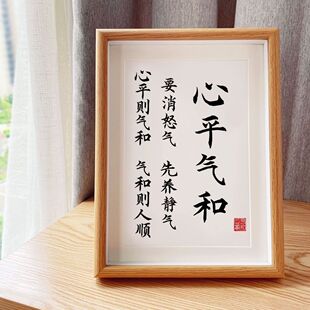 心平气和
要消怒气 先养静气
心平则气和 气和则人顺